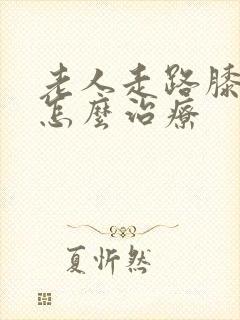 老人走路膝
怎麼治療
夏忻然